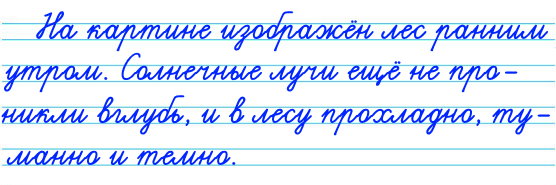 На картине изображён лес ранним
утром. Солнечные лучи ещё не про-
никли вглубь, и в лесу прохладно, ту-
манно и темно.